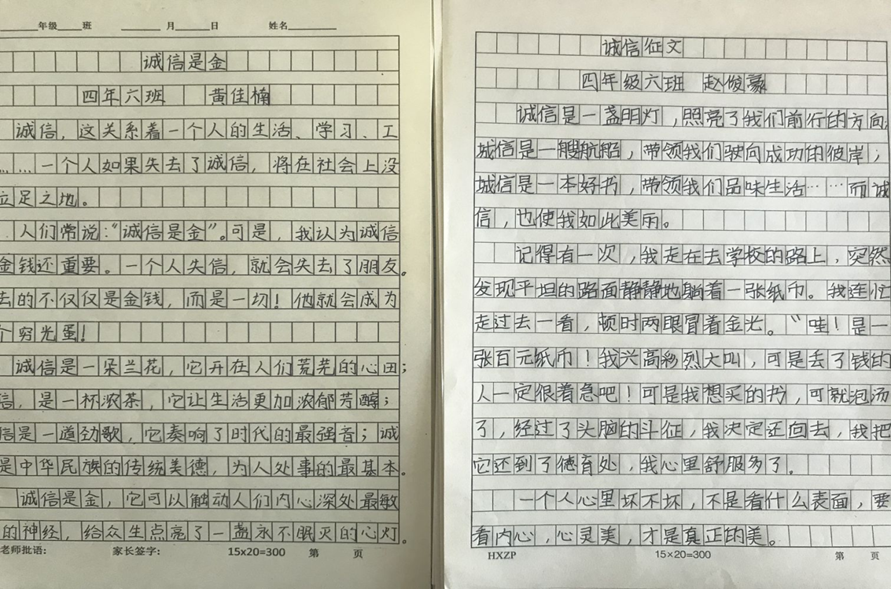 年级 班 月 日 姓名
诚信是金
四年六班 黄佳楠
诚信，这关系着一个人的生活、学习、工
……一个人如果失去了诚信，将在社会上没
立足之地。
人们常说：“诚信是金”。可是，我认为诚信
金钱还重要。一个人失信，就会失去了朋友。
去的不仅仅是金钱，而是一切！他就会成为
个穷光蛋！
诚信是一朵兰花，它开在人们荒芜的心田；
信，是一杯浓茶，它让生活更加浓郁芳醇；
信是一道劲歌，它奏响了时代的最强音；诚
是中华民族的传统美德，为人处事的最基本。
诚信是金，它可以触动人们内心深处最敏
的神经，给众生点亮了一盏永不眠灭的心灯。
老师批语： 家长签字： 15×20=300 第 页
诚信征文
四年级六班 赵俊豪
诚信是一盏明灯，照亮了我们前行的方向；
诚信是一艘航船，带领我们驶向成功的彼岸；
诚信是一本好书，带领我们品味生活……而诚
信，也使我如此美丽。
记得有一次，我走在去学校的路上，突然
发现平坦的路面静静地躺着一张纸币。我连忙
走过去一看，顿时两眼冒着金光。“哇！是一
张百元纸币！我兴高彩烈大叫，可是丢了钱的
人一定很着急吧！可是我想买的书，可就泡汤
了，经过了头脑的斗征，我决定还回去，我把
它还到了德育处，我心里舒服多了。
一个人心里坏不坏，不是看什么表面，要
看内心，心灵美，才是真正的美。
HXZP 15×20=300 第 页